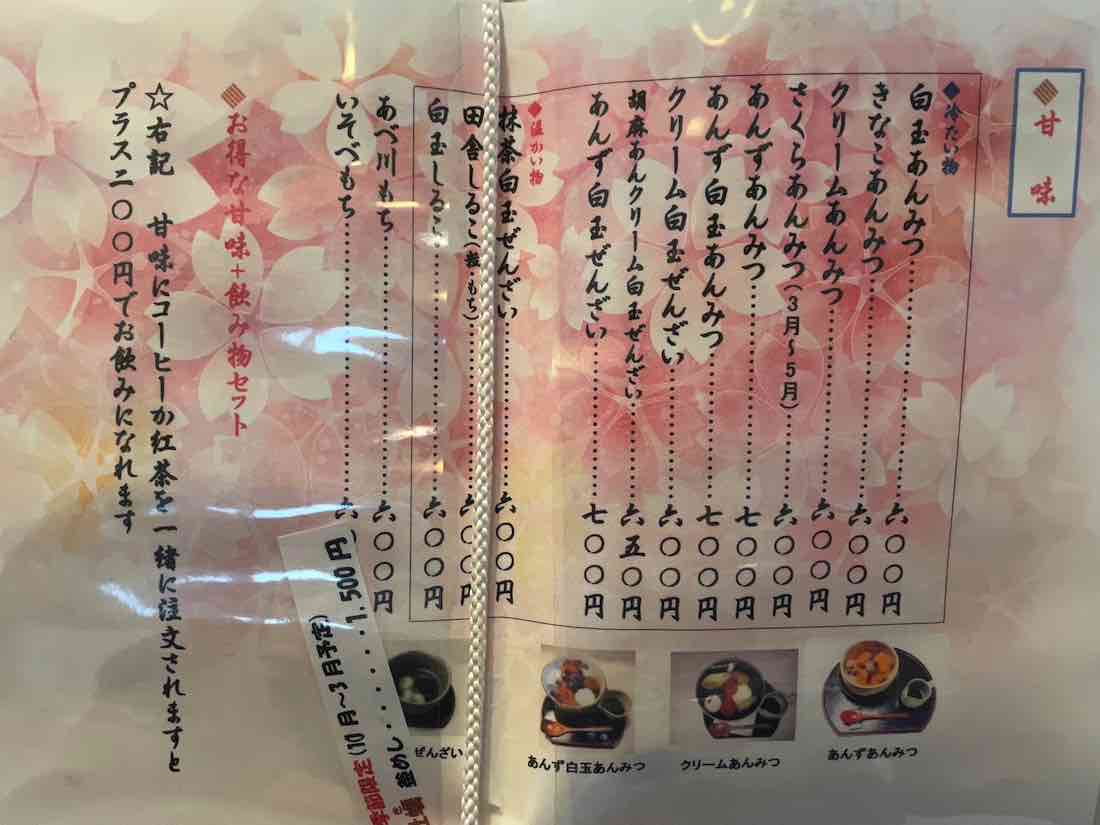 甘味
◆冷たい物
白玉あんみつ……六〇〇円
きなこあんみつ……六〇〇円
クリームあんみつ……六〇〇円
さくらあんみつ(3月~5月)……六〇〇円
あんずあんみつ……七〇〇円
あんず白玉あんみつ……七〇〇円
クリーム白玉ぜんざい……六〇〇円
胡麻あんクリーム白玉ぜんざい……六五〇円
あんず白玉ぜんざい……七〇〇円
◆温かい物
抹茶白玉ぜんざい……六〇〇円
田舎しるこ(粒、もち)……六〇〇円
白玉しるこ……六〇〇円
あべ川もち……六〇〇円
いそべもち……六
お得な甘味+飲み物セット
☆右記 甘味にコーヒーか紅茶を一緒に注文されますと
プラス二〇〇円でお飲みになれます
あんずあんみつ
クリームあんみつ
あんず白玉あんみつ
ぜんざい
季節限定(10月~3月予定)
釜めし......1,500円